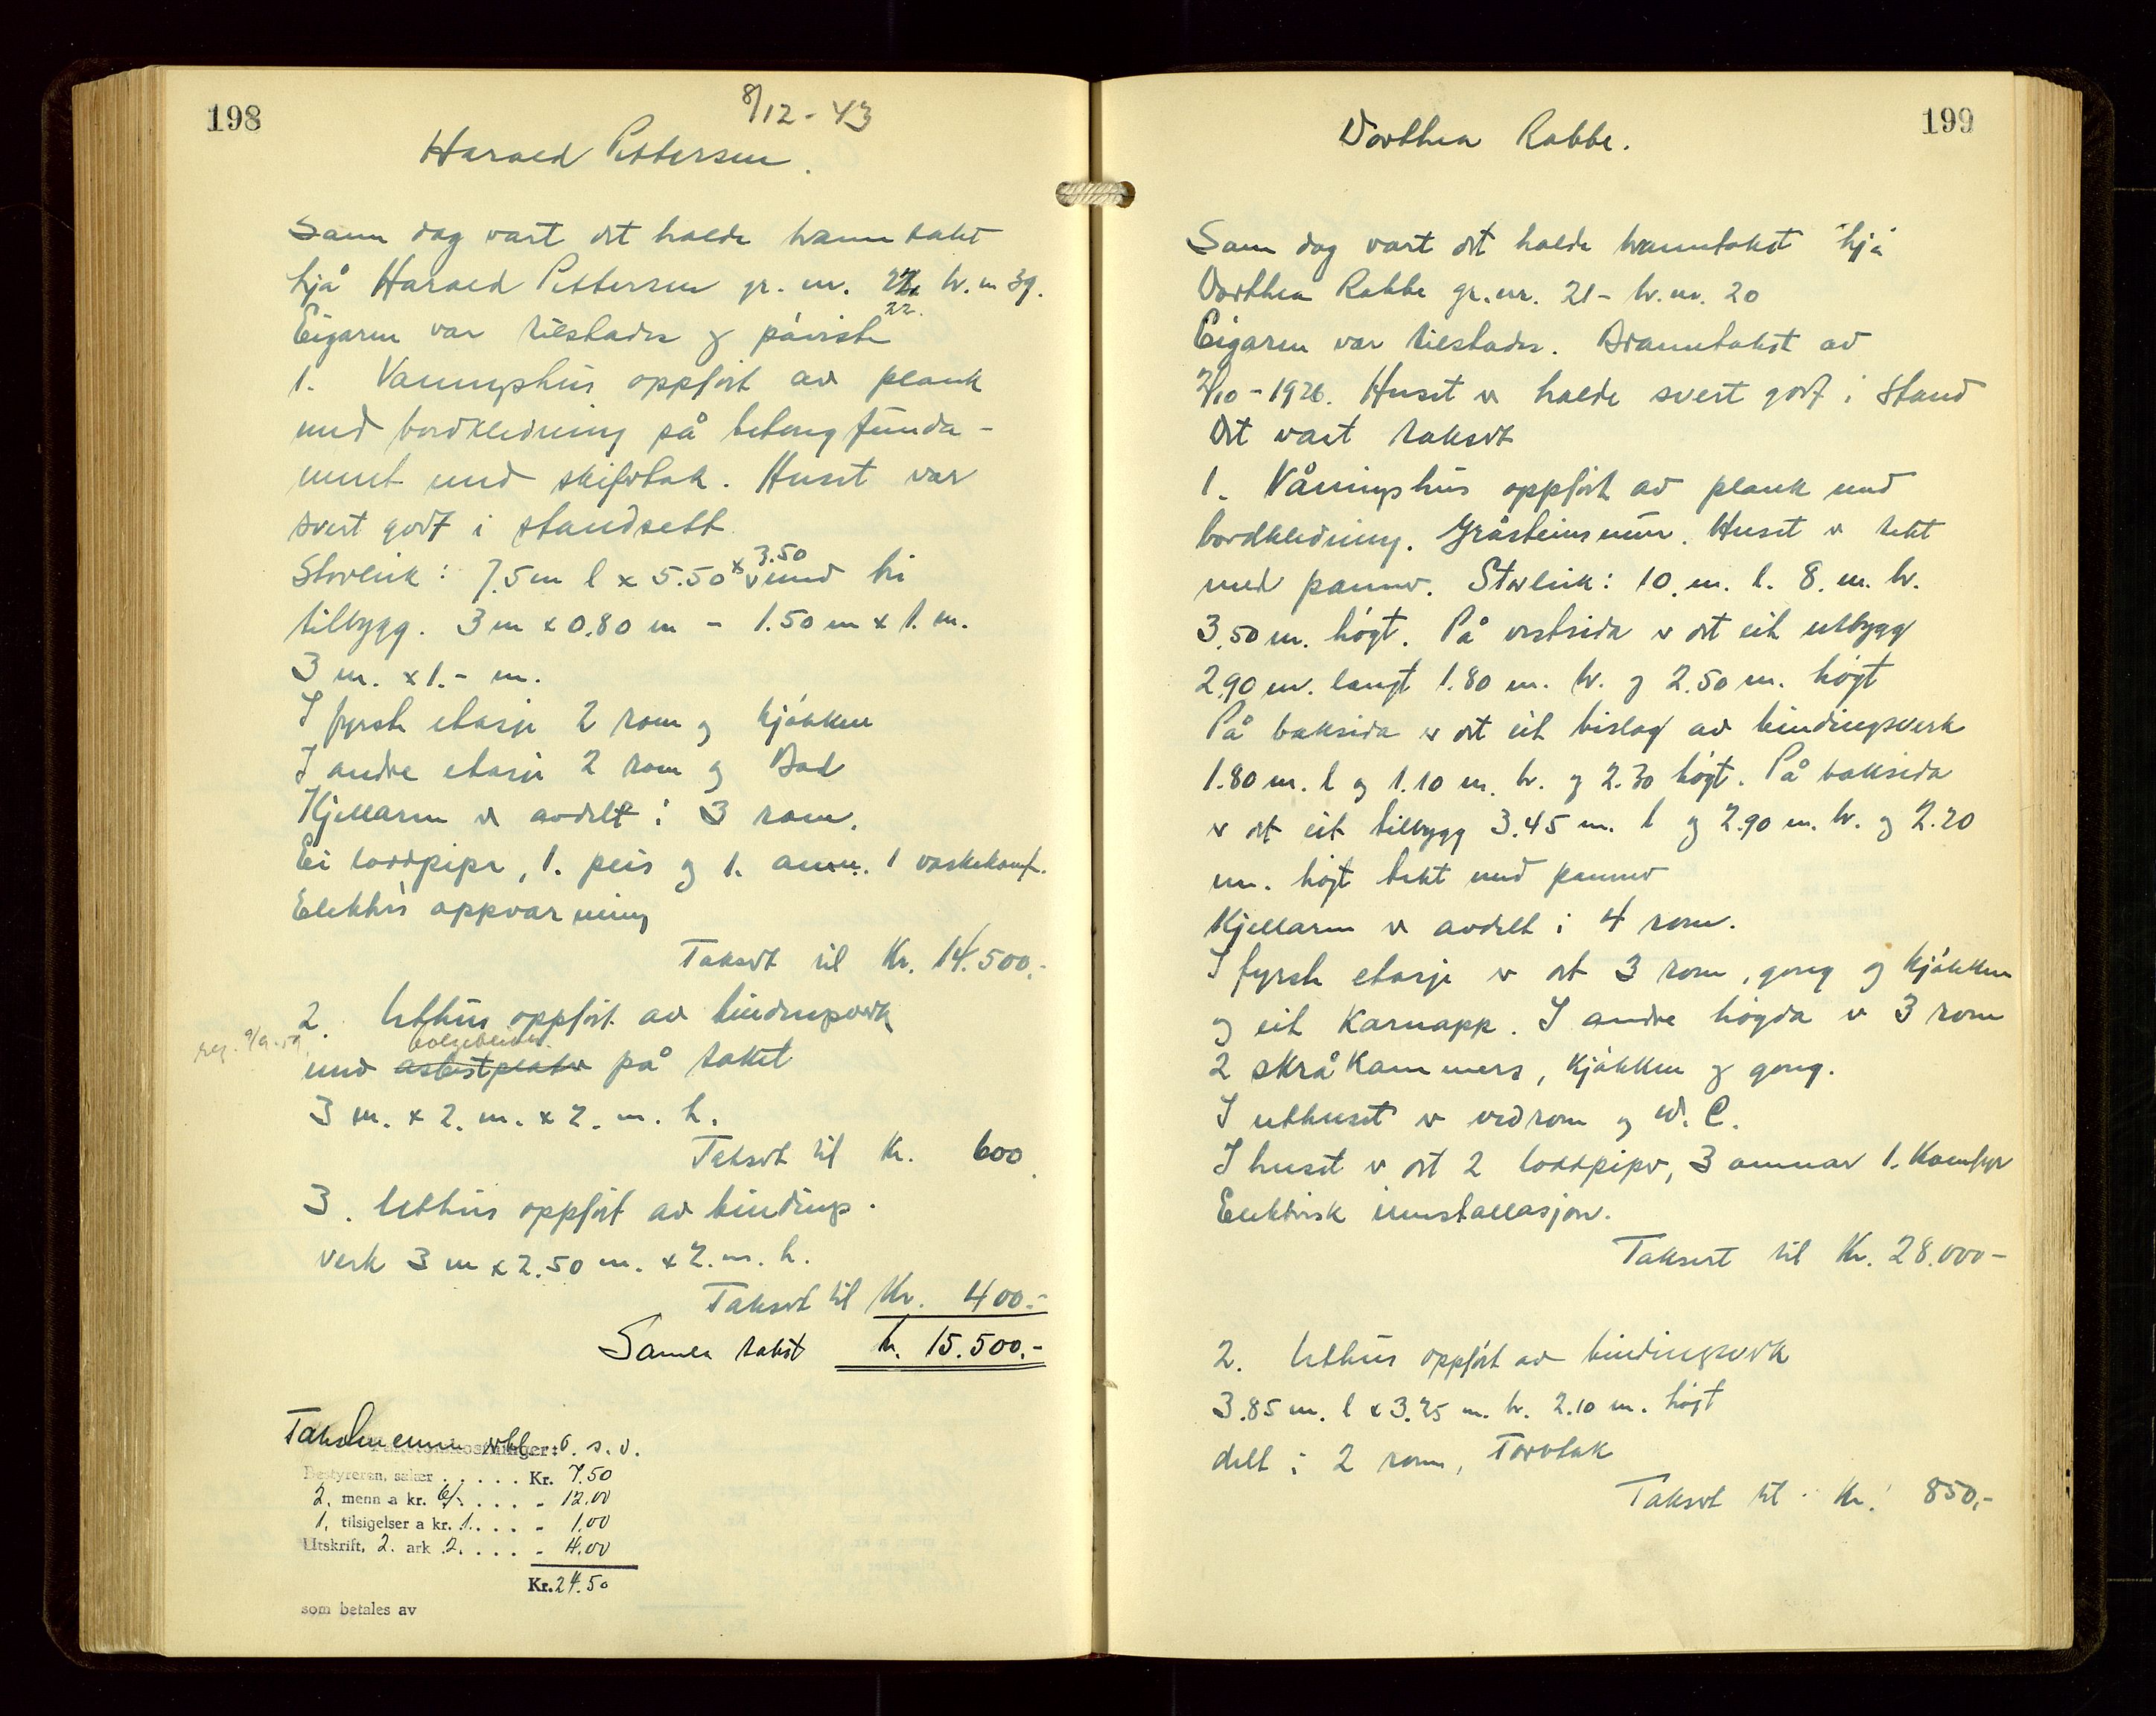 198
8/12 - 43
Harald Pettersen.
Same dag vart det halde branntakst
hjå Harald Pettersen gr. nr. 22 br. n 39.
22.
Eigaren var tilstades og påviste
1. Vaaningshus oppført av plank
med bordkledning på betongfunda-
ment med skifertak. Huset var
svert godt i standsett
Storleik: 7.5 m l x 5.50 x 3.50 med tri
tilbygg. 3 m x 0.80 m - 1.50 m x 1. m.
3 m. x 1.- m.
I fyrste etasje 2 rom og kjøkken
I andre etasje 2 rom og Bad
Kjellaren er avdelt i 3 rom.
Ei loddpipe, 1. peis og 1. omn. 1 vaskekomf.
Elektris oppvarming
Taksert til Kr. 14.500.-
2. Uthus oppført av bindingsverk
reg. 9/9-59.
bølgeblekk
med asbestplater på taket
3 m. x 2. m. x 2. m. h.
Taksert til Kr. 600
3. Uthus oppført av bindings-
verk 3 m x 2.50 m. x 2. m. h.
Taksert til Kr. 400.-
Samla takst kr. 15.500.-
Takstmennene o. s. v.
Bestyreren, salær ..... Kr. 7.50
2. menn a kr. 6/- .... - 12.00
1. tilsigelser a kr. 1.... - 1.00
Utskrift, 2. ark 2. .... - 4.00
Kr. 24.50
som betales av
199
Dorthea Rabbe.
Same dag vart det halde branntakst hjå
Dorthea Rabbe gr. nr. 21 - br. nr. 20
Eigaren var tilstades. Branntakst av
2/10 - 1926. Huset er halde svert godt i Stand
Det vart taksert
1. Våningshus oppført av plank med
bordkledning. Gråsteinsmur. Huset er tekt
med panner. Storleik: 10. m. l. 8. m. br.
3.50 m. høgt. På vestsida er det eit utbygg
2.90 m. langt 1.80 m. br. og 2.50 m. høgt
På baksida er det eit bislag av bindingsverk
1.80 m. l og 1.10 m. br. og 2.30 høgt. På baksida
er det eit tilbygg 3.45 m. l og 2.90 m. br. og 2.20
m. høgt tekt med panner
Kjellaren er avdelt i 4 rom.
I fyrste etasje er det 3 rom, gong og kjøkken
og eit Karnapp. I andre høgda er 3 rom
2 skråkammers, kjøkken og gong.
I uthuset er vedrom og W. C.
I huset er det 2 loddpiper, 3 omnar 1. Komfyr
Elektrisk innstallasjon.
Taksert til Kr. 28.000-
2. Uthus oppført av bindingsverk
3.85 m. l x 3.25 m. br. 2.10 m. høgt
delt i 2 rom, Torvtak
Taksert til Kr. 850,-